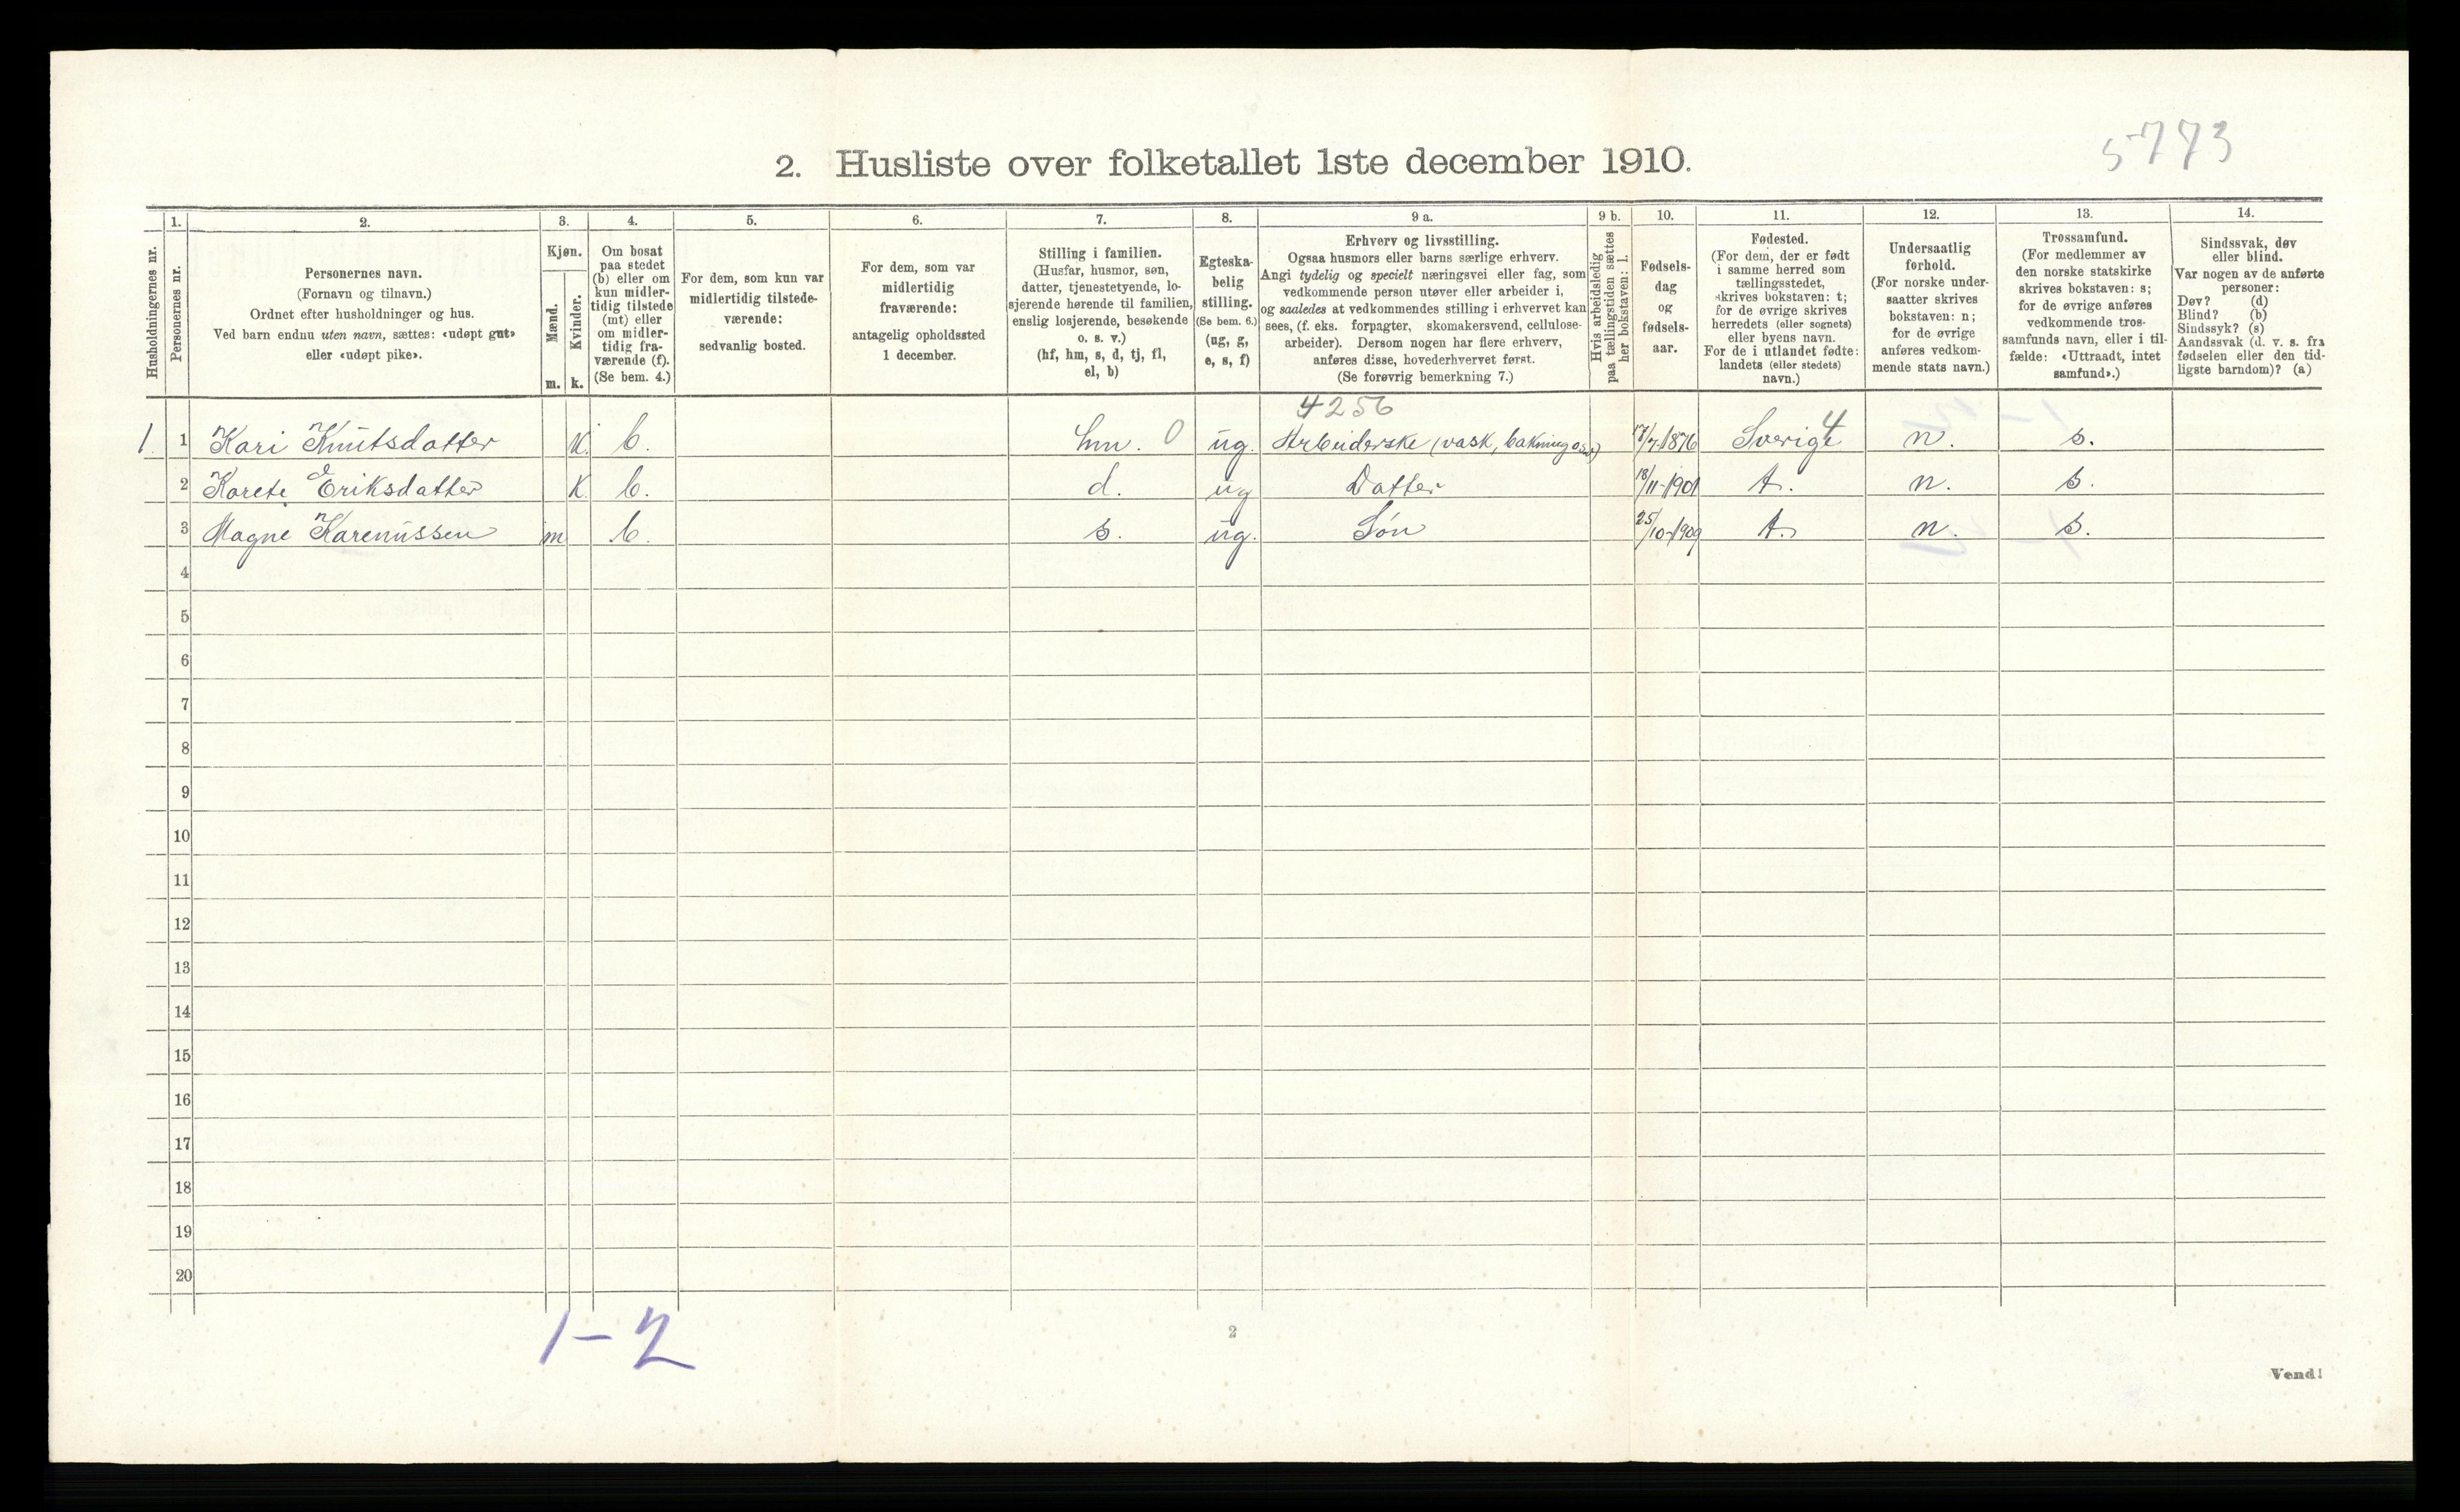 5773
2. Husliste over folketallet 1ste december 1910.
Husholdningernes nr.
1.
Personernes nr.
2.
Personernes navn.
(Fornavn og tilnavn.)
Ordnet efter husholdninger og hus.
Ved barn endnu uten navn, sættes: «udøpt gut»
eller «udøpt pike».
3.
Kjøn.
Mænd.
m.
Kvinder.
k.
4.
Om bosat
paa stedet
(b) eller om
kun midler-
tidig tilstede
(mt) eller
om midler-
tidig fra-
værende (f).
(Se bem. 4.)
5.
For dem, som kun var
midlertidig tilstede-
værende:
sedvanlig bosted.
6.
For dem, som var
midlertidig
fraværende:
antagelig opholdssted
1 december.
7.
Stilling i familien.
(Husfar, husmor, søn,
datter, tjenestetyende, lo-
sjerende hørende til familien,
enslig losjerende, besøkende
o. s. v.)
(hf, hm, s, d, tj, fl,
el, b)
8.
Egteska-
belig
stilling.
(Se bem. 6.)
(ug, g,
e, s, f)
9 a.
Erhverv og livsstilling.
Ogsaa husmors eller barns særlige erhverv.
Angi tydelig og specielt næringsvei eller fag, som
vedkommende person utøver eller arbeider i,
og saaledes at vedkommendes stilling i erhvervet kan
sees, (f. eks. forpagter, skomakersvend, cellulose-
arbeider). Dersom nogen har flere erhverv,
anføres disse, hovederhvervet først.
(Se forøvrig bemerkning 7.)
9 b.
Hvis arbeidsledig
paa tællingstiden sættes
her bokstaven: l.
10.
Fødsels-
dag
og
fødsels-
aar.
11.
Fødested.
(For dem, der er født
i samme herred som
tællingsstedet,
skrives bokstaven: t;
for de øvrige skrives
herredets (eller sognets)
eller byens navn.
For de i utlandet fødte:
landets (eller stedets)
navn.)
12.
Undersaatlig
forhold.
(For norske under-
saatter skrives
bokstaven: n;
for de øvrige
anføres vedkom-
mende stats navn.)
13.
Trossamfund.
(For medlemmer av
den norske statskirke
skrives bokstaven: s;
for de øvrige anføres
vedkommende tros-
samfunds navn, eller i til-
fælde: «Uttraadt, intet
samfund».)
14.
Sindssvak, døv
eller blind.
Var nogen av de anførte
personer:
Døv? (d)
Blind? (b)
Sindssyk? (s)
Aandssvak (d. v. s. fra
fødselen eller den tid-
ligste barndom)? (a)
4256
1. 1 Kari Knutsdatter K. b. hm. 0 ug. Arbeiderske (vask, bakning osv) 17/7-1876 Sverige 4 n. s.
2 Karete Eriksdatter K. b. d. ug Datter 18/11-1901 t. n. s.
3 Magne Karenussen m b. s. ug. Søn 25/10-1909 t. n. s.
4
5
6
7
8
9
10
11
12
13
14
15
16
17
18
19
20
1-2
2
Vend!